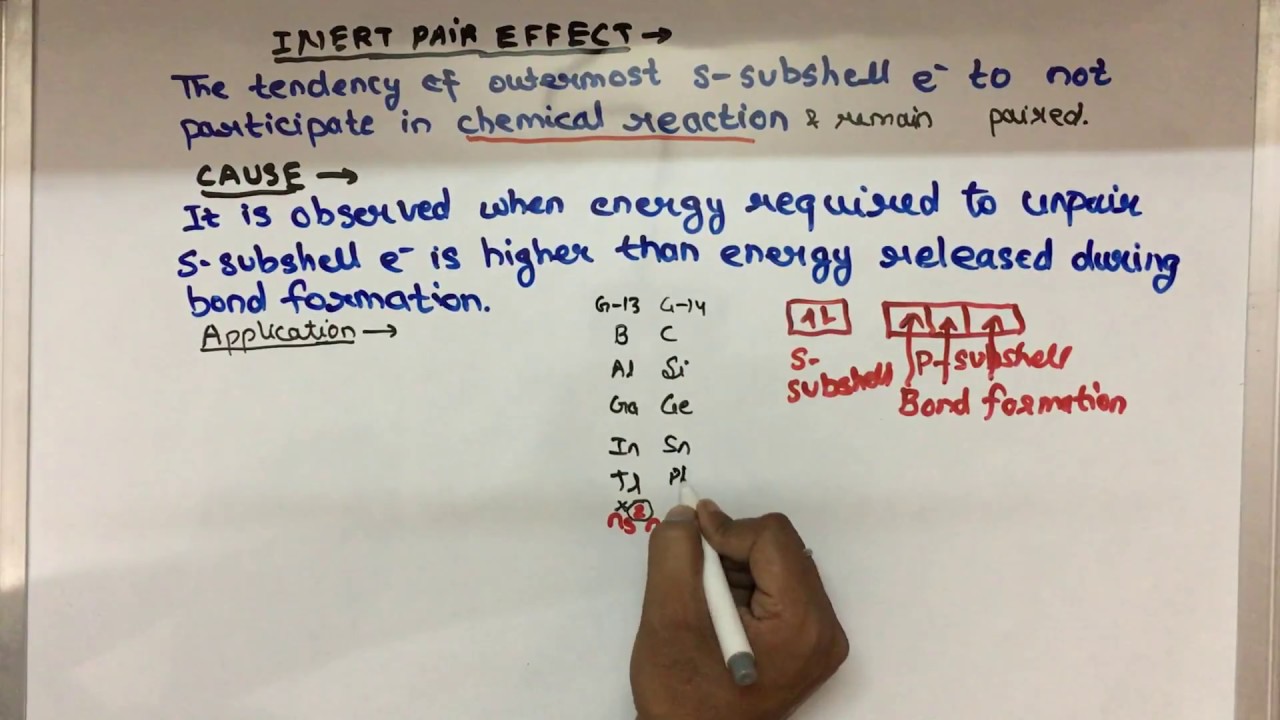 INERT PAIR EFFECT →
The tendency of outermost s-subshell e⁻ to not
participate in chemical reaction & remain paired.
CAUSE →
It is observed when energy required to unpair
s-subshell e⁻ is higher than energy released during
bond formation.
Application →
G-13 G-14
B C
Al Si
Ga Ge
In Sn
Tl
ns
2
S-
subshell
P-subshell
Bond formation